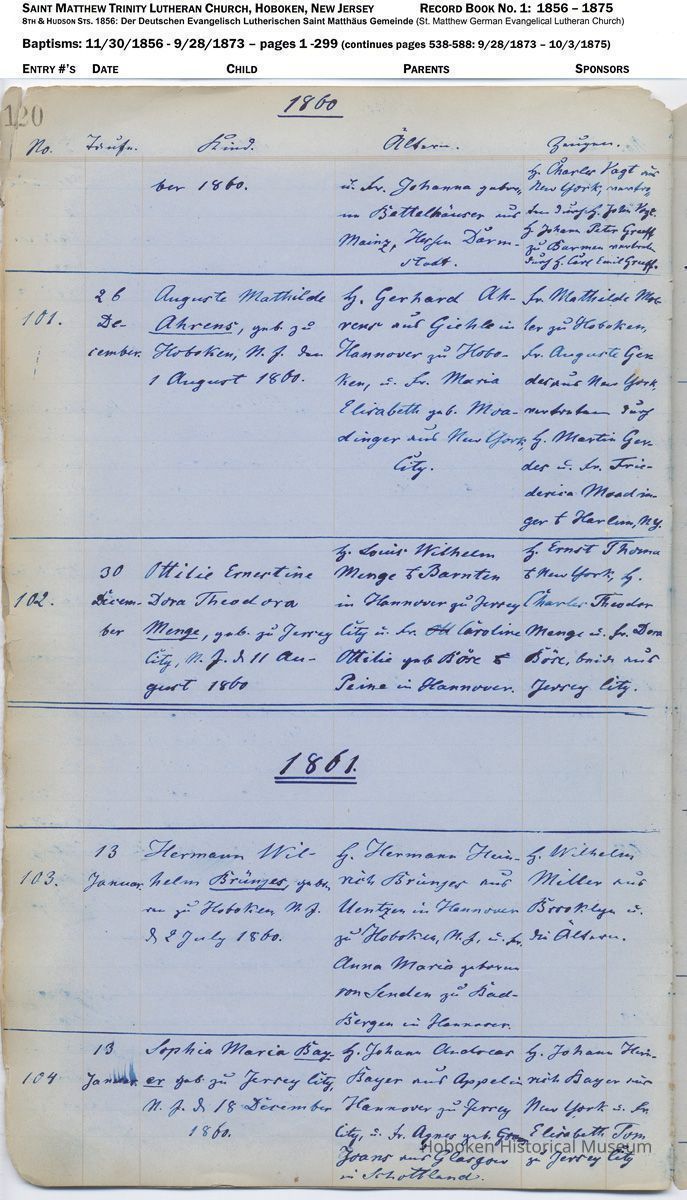 SAINT MATTHEW TRINITY LUTHERAN CHURCH, HOBOKEN, NEW JERSEY RECORD BOOK NO. 1: 1856 – 1875
8TH & HUDSON STS. 1856: Der Deutschen Evangelisch Lutherischen Saint Matthäus Gemeinde (St. Matthew German Evangelical Lutheran Church)
Baptisms: 11/30/1856 - 9/28/1873 – pages 1 -299 (continues pages 538-588: 9/28/1873 – 10/3/1875)
ENTRY #'S DATE CHILD PARENTS SPONSORS
120
1860
No. Taufe. Kind. Ältern. Zeugen.
ber 1860.
u. Fr. Johanna gebore-
ne Bettelhäuser aus
Mainz, Hessen Darm-
stadt.
H. Charles Vogt aus
New York, vertre-
ten durch H. John Vogt.
H. Johann Peter Greeff
zu Barmen vertreten
durch H. Carl Emil Greeff.
101.
26
De-
cember.
Auguste Mathilde
Ahrens, geb. zu
Hoboken, N. J. den
1 August 1860.
H. Gerhard Ah-
rens aus Giehle in
Hannover zu Hobo-
ken, u. Fr. Maria
Elisabeth geb. Moa-
dinger aus New York
City.
Fr. Mathilde Mol-
ler zu Hoboken,
Fr. Auguste Ger-
des aus New York,
vertreten durch
H. Martin Ger-
des u. Fr. Frie-
derica Moadin-
ger v Harlem, N.Y.
102.
30
Decem-
ber
Ottilie Ernestine
Dora Theodora
Menge, geb. zu Jersey
City, N. J. d 11 Au-
gust 1860
H. Louis Wilhelm
Menge v Barnten
in Hannover zu Jersey
City u. Fr. Caroline
Ottilie geb Böse v
Peine in Hannover.
H. Ernst Thoma
v New York, H.
Charles Theodor
Menge u. Fr. Dora
Böse, beide aus
Jersey City.
1861.
103.
13
Januar.
Hermann Wil-
helm Brünjes, gebo-
ren zu Hoboken, N. J.
d 2 July 1860.
H. Hermann Hein-
rich Brünjes aus
Uentzen in Hannover
zu Hoboken, N. J., u. Fr.
Anna Maria geboren
von Senden zu Bad-
Bergen in Hannover.
H. Wilhelm
Miller aus
Brooklyn u.
die Ältern.
104
13
Januar.
Sophia Maria Bay-
er geb zu Jersey City,
N. J. d 18 December
1860.
H. Johann Andreas
Bayer aus Appel in
Hannover zu Jersey
City, u. Fr. Agnes geb.
aus Glasgow
in Schottland.
H. Johann Hein-
rich Bayer aus
New York u. Fr.
Elisabeth Tom
zu Jersey City
Hoboken Historical Museum